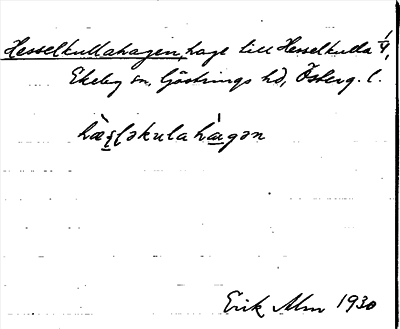 Hesselkullahagen, hage till Hesselkulla 1/4,
Ekeby sn, Göstrings hd, Österg. l.
hæ̀ʂləkulahàgən
Erik Alm 1930